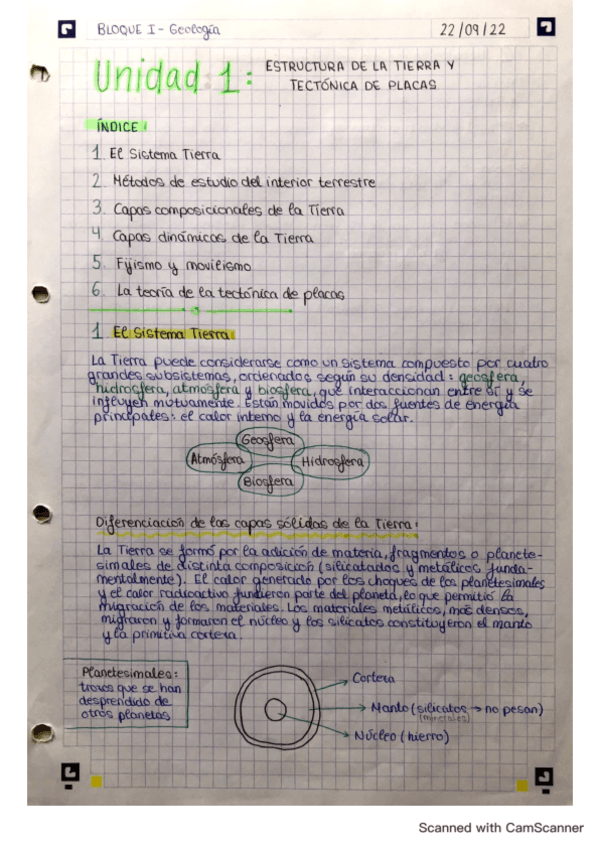 BLOQUE I - Geología
22/09/22
Unidad 1:
ESTRUCTURA DE LA TIERRA Y
TECTÓNICA DE PLACAS
ÍNDICE:
1. El Sistema Tierra
2. Métodos de estudio del interior terrestre
3. Capas composicionales de la Tierra
4. Capas dinámicas de la Tierra
5. Fijismo y movilismo
6. La teoría de la tectónica de placas
1. El Sistema Tierra:
La Tierra puede considerarse como un sistema compuesto por cuatro
grandes subsistemas, ordenados según su densidad: geosfera,
hidrosfera, atmósfera y biosfera, que interaccionan entre sí y se
influyen mutuamente. Están movidos por dos fuentes de energía
principales: el calor interno y la energía solar.
Geosfera
Atmósfera
Hidrosfera
Biosfera
Diferenciación de las capas sólidas de la Tierra:
La Tierra se formó por la adición de materia, fragmentos o planete-
simales de distinta composición (silicatados y metálicos funda-
mentalmente). El calor generado por los choques de los planetesimales
y el calor radioactivo fundieron parte del planeta, lo que permitió la
migración de los materiales. Los materiales metálicos, más densos,
migraron y formaron el núcleo y los silicatos constituyeron el manto
y la primitiva corteza.
Planetesimales:
trozos que se han
desprendido de
otros planetas
Corteza
Manto (silicatos → no pesan)
(minerales)
Núcleo (hierro)
Scanned with CamScanner